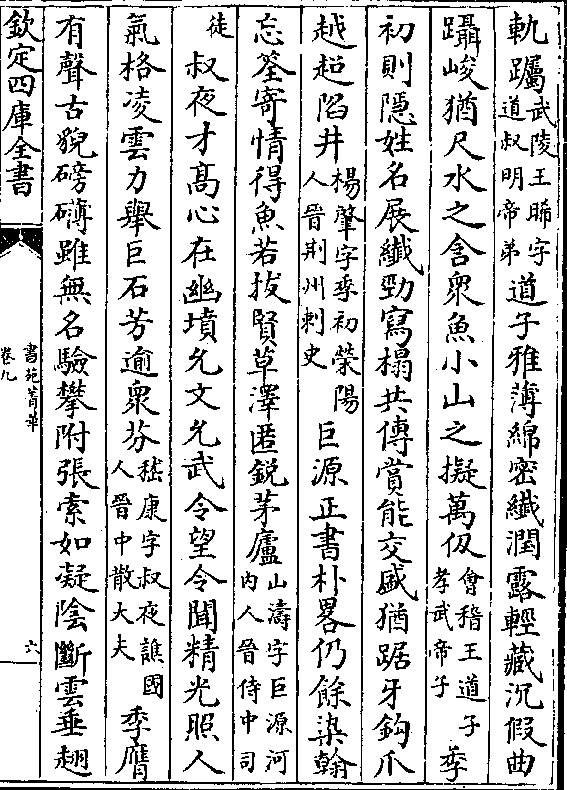 軌躅武陵王晞字道叔明帝弟道子雅薄綿密纎潤露輕藏沉假曲
躡峻猶尺水之含衆魚小山之擬萬仭會稽王道子孝武帝子季
初則隱姓名展纎勁寫榻共傳賞能交感猶踞牙鉤爪
越超陷井楊肇字季初滎陽人晉荆州刺史巨源正書朴畧仍餘染翰
忘筌寄情得魚若拔賢草澤匿鋭茅廬山濤字巨源河内人晉侍中司
徒叔夜才髙心在幽墳允文允武令望令聞精光照人
氣格凌雲力舉巨石芳逾衆芬嵇康字叔夜譙國人晉中散大夫季膺
有聲古貌磅礴雖無名驗攀附張索如凝陰斷雲垂翅
欽定四庫全書
書苑菁華
卷九
六